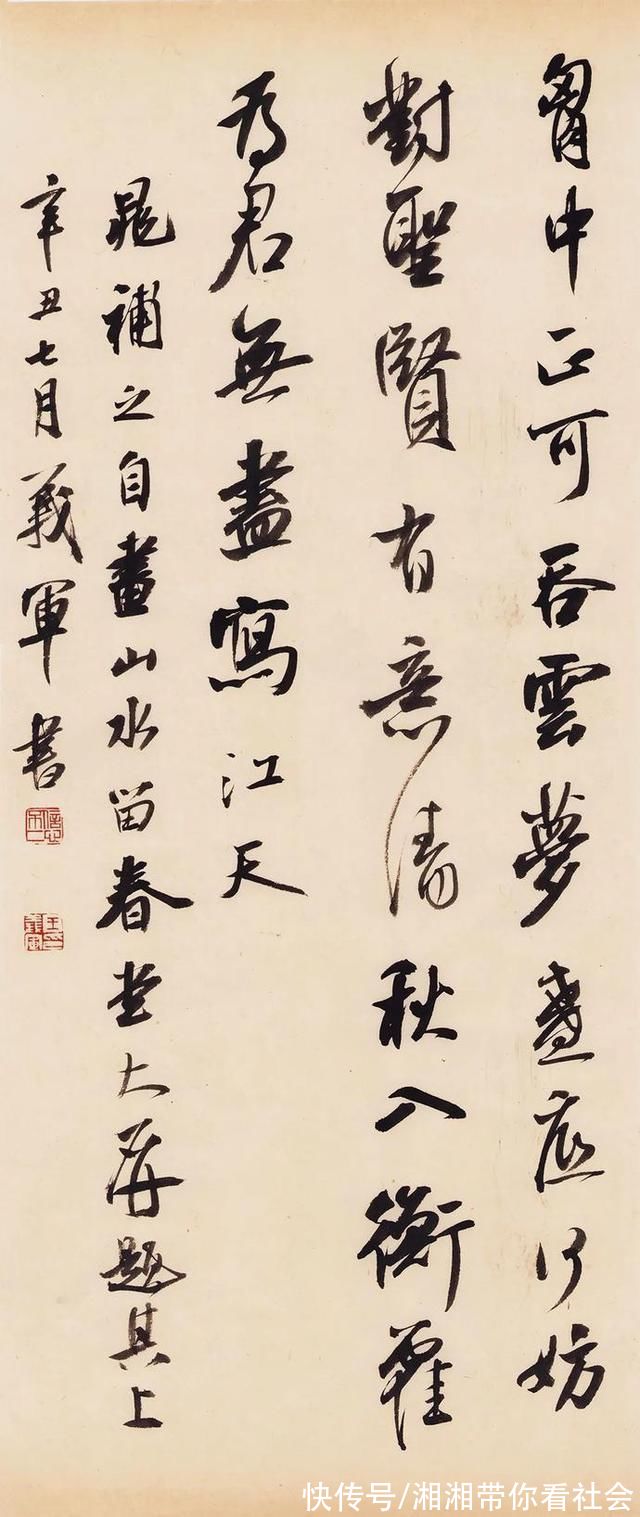 胷中正可吞雲夢盞底何妨
對聖賢有意清秋入衡霍
為君無盡寫江天
晁補之自畫山水留春堂大屏題其上
辛丑七月義軍書
快传号/湘湘带你看社会